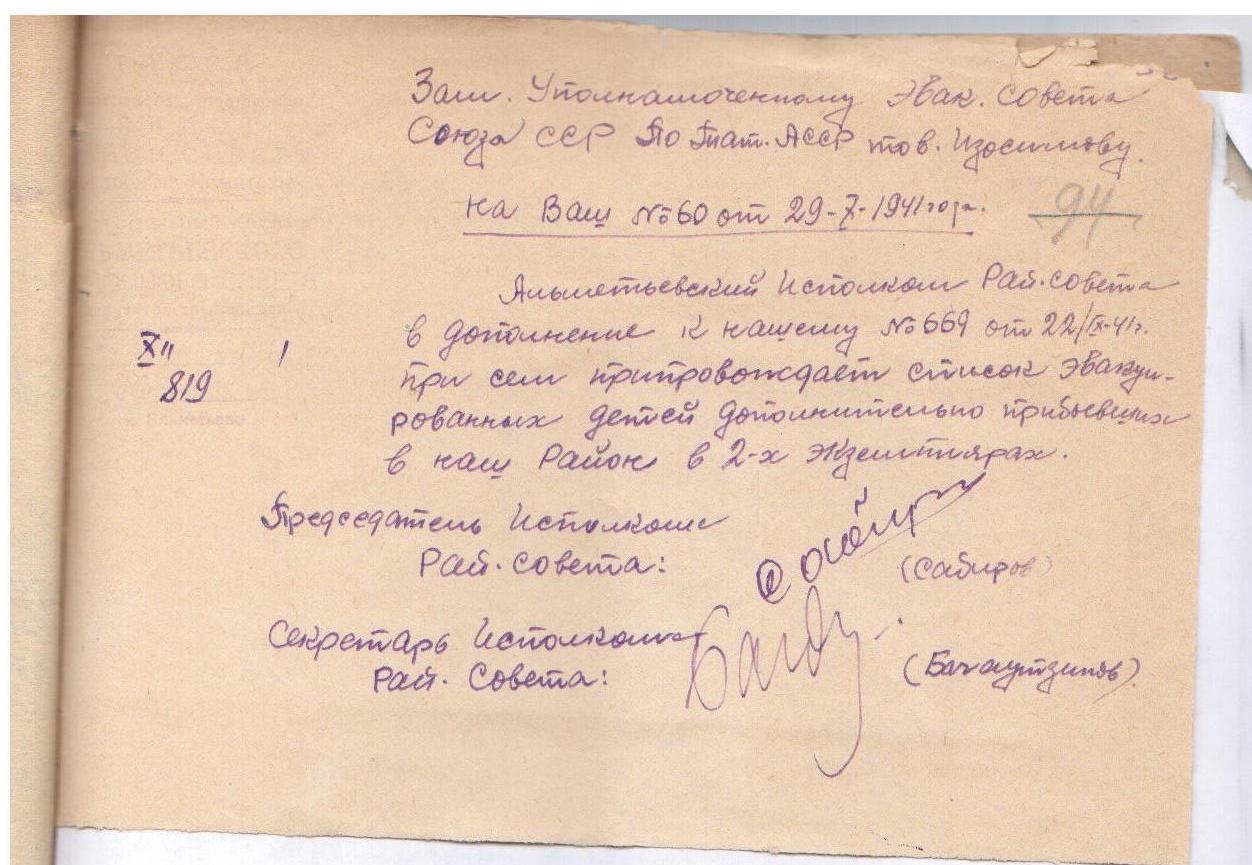 Зам. Уполнамоченному Эвак. Совета
Союза ССР по Тат. АССР тов. Изосимову.
на Ваш №60 от 29-X-1941 года.
94
Альметьевский Исполком Рай.совета
в дополнение к нашему №669 от 22/IX-41г.
при сем припровождает список эвакуи-
рованных детей дополнительно прибывших
в наш Район в 2-х экземплярах.
XII
819
Председатель Исполкома
Рай. совета:
(Сабиров)
Секретарь Исполкома
Рай. Совета: